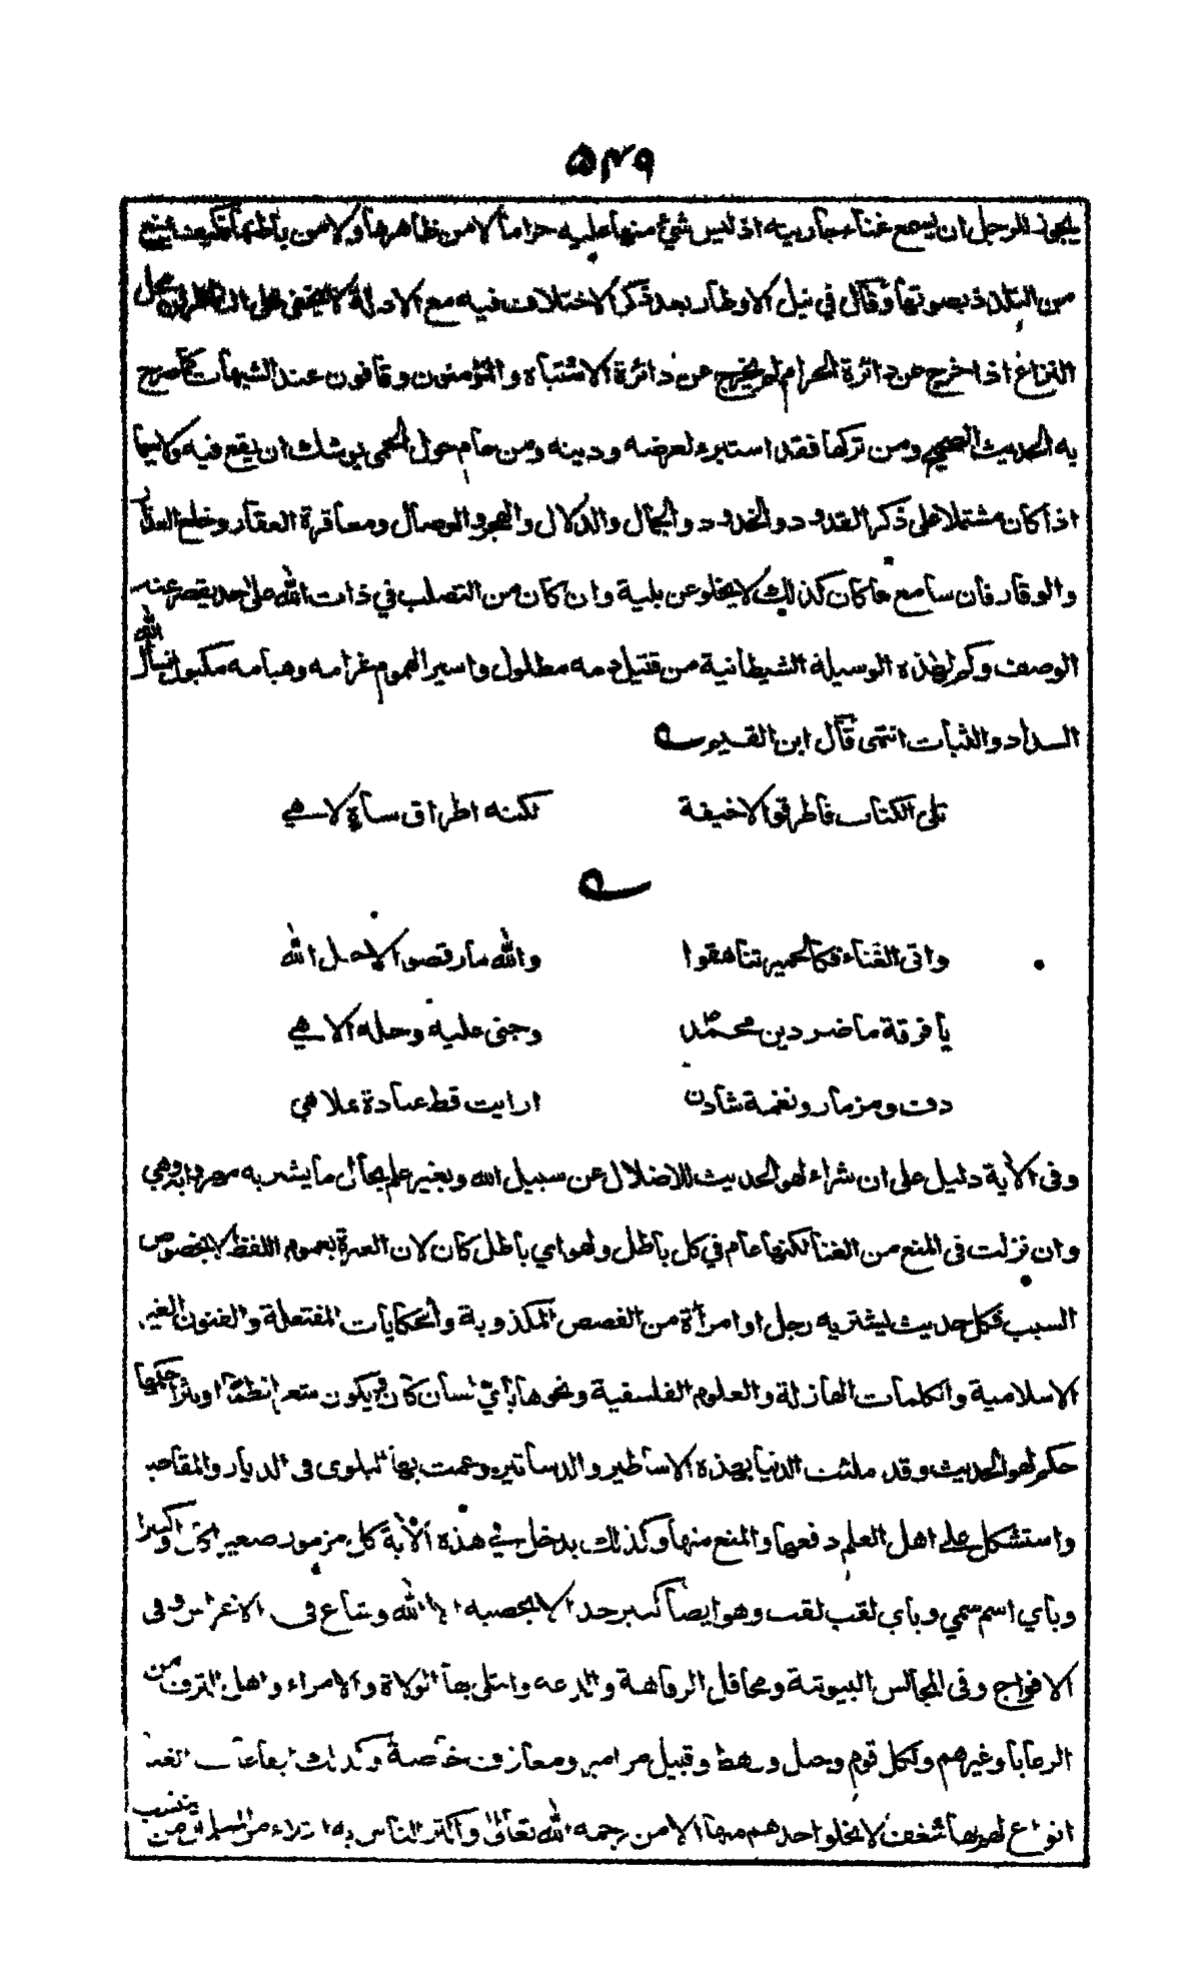 ۵۴۹
يجوز للرجل ان يسمع غناء جاريته اذ ليس شئ منها عليه حراما لا من ظاهرها ولا من باطنها فكيف يمنع
من التلذذ بصوتها وقال في نيل الاوطار بعد ذكر الاختلاف فيه مع الادلة لا يخفى على الناظر ان محل
النزاع اذا خرج عن دائرة الحرام لم يخرج عن دائرة الاشتباه والمؤمنون وقافون عند الشبهات كما صرح
به الحديث الصحيح ومن تركها فقد استبرء لعرضه ودينه ومن حام حول الحمى يوشك ان يقع فيه ولا سيما
اذا كان مشتملا على ذكر القدود والخدود والجمال والدلال والهجر والوصال ومعاقرة العقار وخلع العذار
والوقار فان سامع ما كان كذلك لا يخلو عن بلية وان كان من التصلب في ذات الله على حد يقصر عنه
الوصف وكم لهذه الوسيلة الشيطانية من قتيل دمه مطلول واسير الهموم غرامه وهيامه مكبول نسأل الله
السداد والثبات انتهى قال ابن القيم
تلى الكتاب فاطرقوا لا خيفة لكنه اطراق ساه لاهي
واتى الغناء فكالحمير تناهقوا والله ما رقصوا لاجل الله
يا فرقة ما ضر دين محمد وجنى عليه وحله الا هي
دف ومزمار ونغمة شادن ارايت قط عبادة بملاهي
وفى الآية دليل على ان شراء لهو الحديث للاضلال عن سبيل الله وبغير علم بحال ما يشتريه حرام وهي
وان نزلت فى المنع من الغنا لكنها عام في كل باطل ولهو اي باطل كان لان العبرة بعموم اللفظ لا بخصوص
السبب فكل حديث يشتريه رجل او امرأة من القصص المكذوبة والحكايات المفتعلة والفنون الغير
الاسلامية والكلمات الهازلة والعلوم الفلسفية ونحوها بأي لسان كان ويكون نظما او نثرا حكمها
حكم لهو الحديث وقد ملئت الدنيا بهذه الاساطير والدساتير وعمت بها البلوى فى الديار
واستشكل على اهل العلم دفعها والمنع منها وكذلك يدخل في هذه الآية كل مزمور صغير او كبير
وبأي اسم سمي وبأي لقب لقب وهو ايضا كثير جدا لا يحصيه الا الله وشاع فى الاعراس وفى
الافواج وفى المجالس البيوتية ومحافل الرفاهة وابتلى بها الولاة والامراء واهل الترف من
الرعايا وغيرهم ولكل قوم ورهط وقبيل مزامير ومعازف خاصة وكذلك
انواع لهم بها شغف لا يخلو احدهم منها الا من رحمه الله تعالى واكثر الناس به ابتلاء من المسلمين من ينتسب